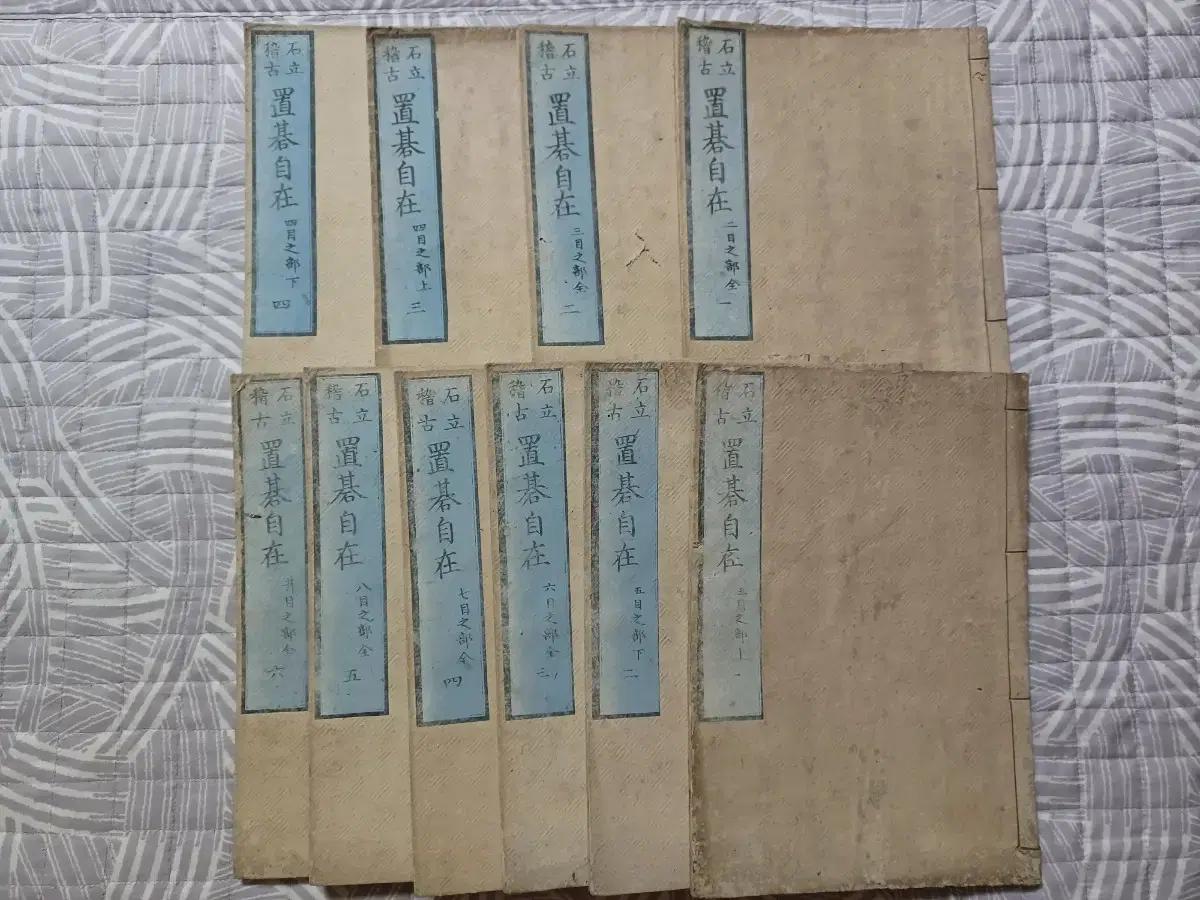 石立
稽古
置碁自在
二目之部全
一
石立
稽古
置碁自在
三目之部全
二
石立
稽古
置碁自在
四目之部上
三
石立
稽古
置碁自在
四目之部下
四
石立
稽古
置碁自在
五目之部上
一
石立
稽古
置碁自在
五目之部下
二
石立
稽古
置碁自在
六目之部全
三
石立
稽古
置碁自在
七目之部全
四
石立
稽古
置碁自在
八目之部全
五
石立
稽古
置碁自在
井目之部全
六